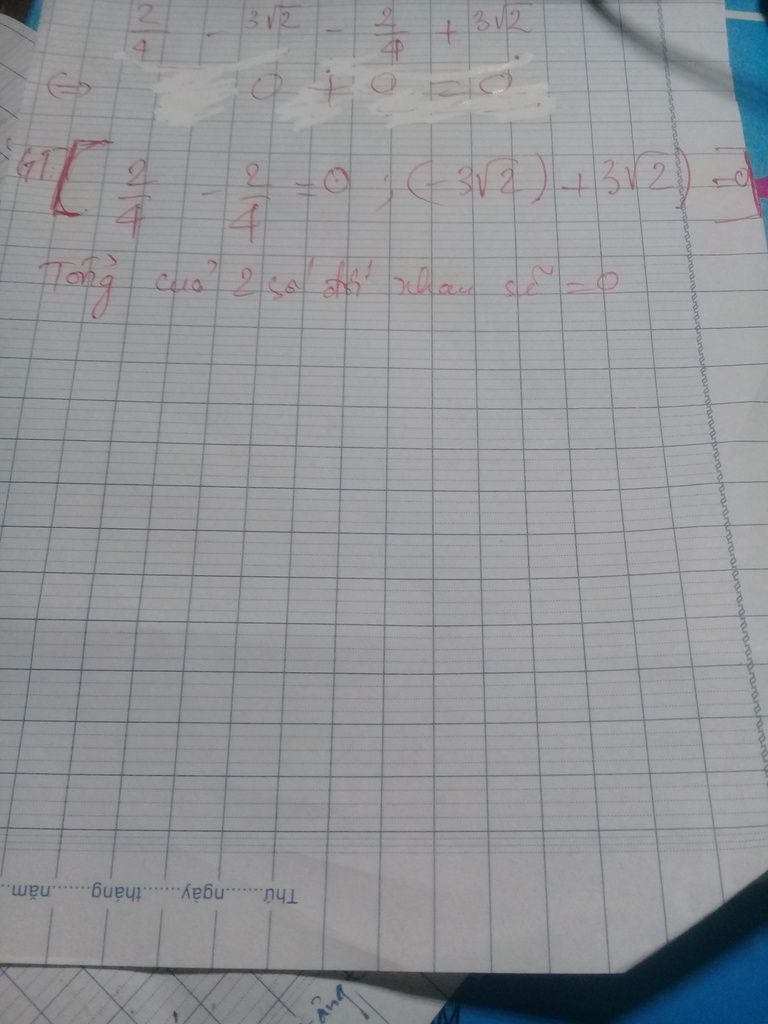 2/4 - 3√2 - 2/4 + 3√2
⇔ 0 + 0 = 0
[ 2/4 - 2/4 = 0 ; (-3√2) + 3√2) = 0 ]
Tổng của 2 số đối nhau sẽ = 0
Thứ.......ngày.......tháng.......năm..